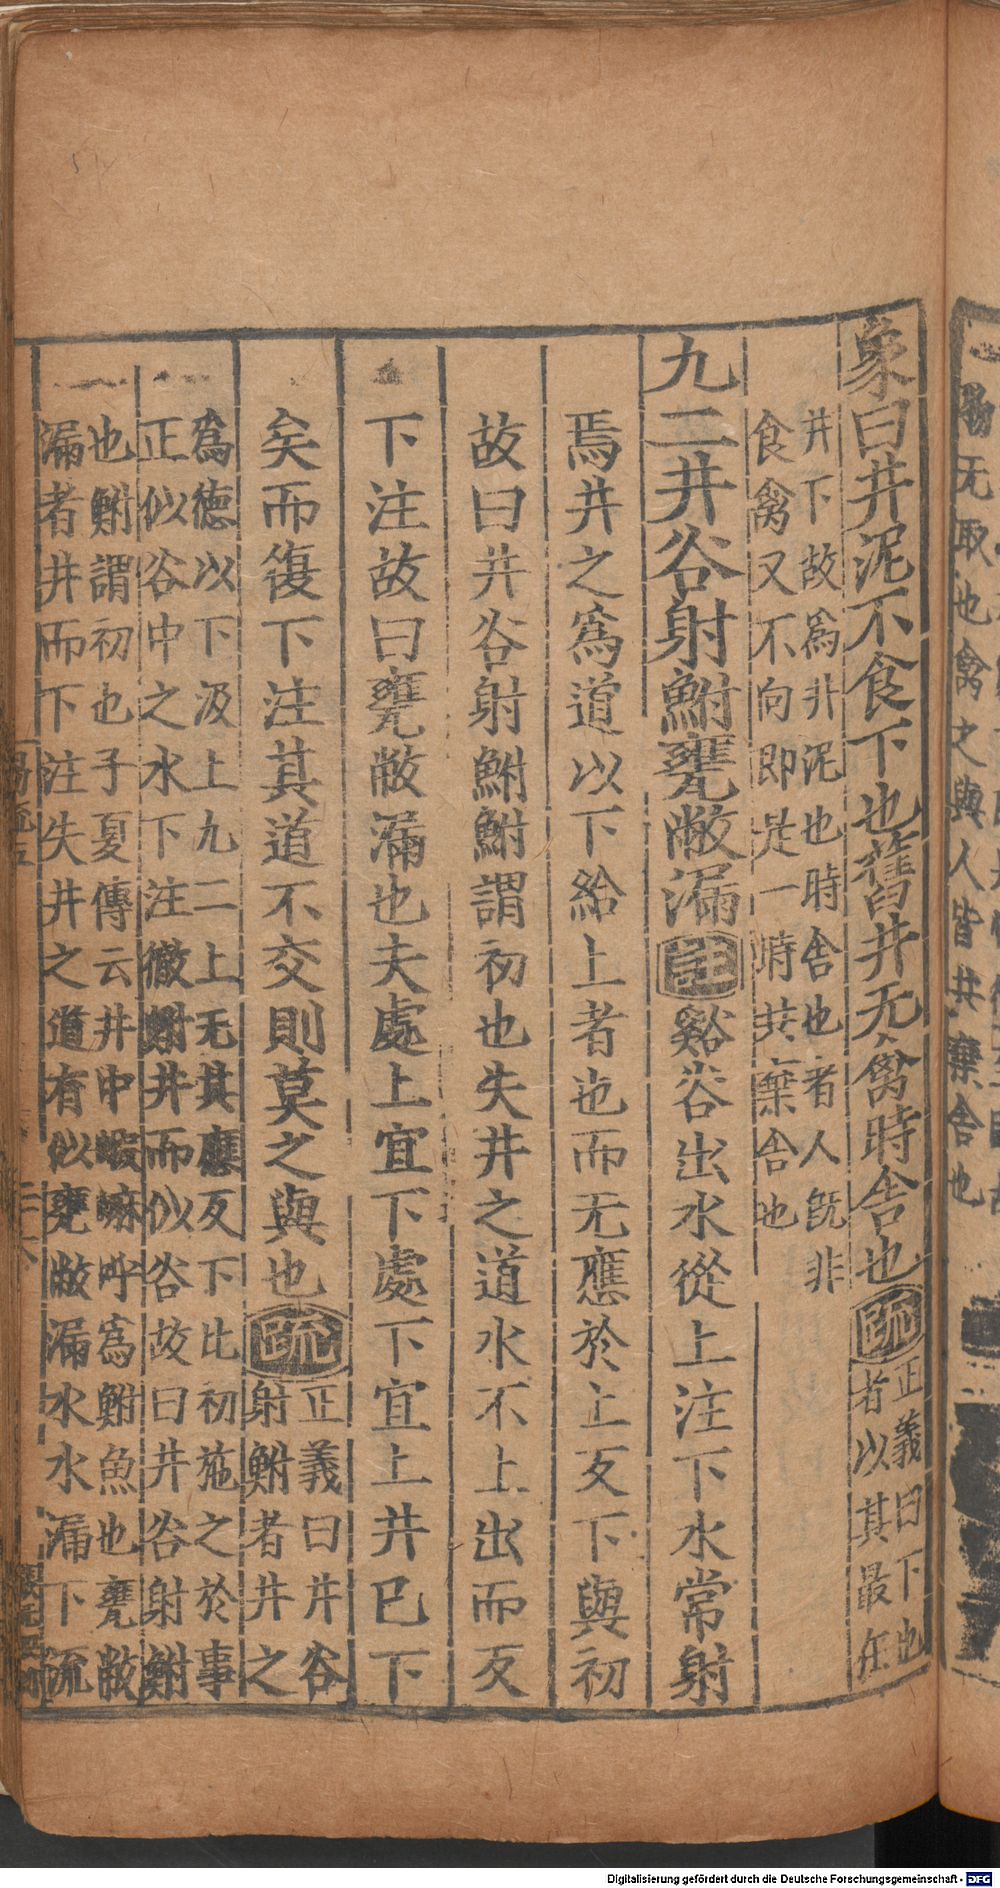 象曰井泥不食下也舊井无禽時舍也疏正義曰下也
者以其最在
井下故爲井泥也時舍也者人既非
食禽又不向即是一時共棄舍也
九二井谷射鮒甕敝漏註谿谷出水從上注下水常射
焉井之爲道以下給上者也而无應於上反下與初
故曰井谷射鮒鮒謂初也失井之道水不上出而反
下注故曰甕敝漏也夫處上宜下處下宜上井已下
矣而復下注其道不交則莫之與也疏正義曰井谷
射鮒者井之
爲德以下汲上九二上无其應反下比初施之於事
正似谷中之水下注㵿鮒井而似谷故曰井谷射鮒
也鮒謂初也子夏傳云井中蝦蟆呼爲鮒魚也甕敝
漏者井而下注失井之道有似甕敝漏水水漏下流
易疏五
陽无取也禽之與人皆共棄舍也
Digitalisierung gefördert durch die Deutsche Forschungsgemeinschaft - DFG